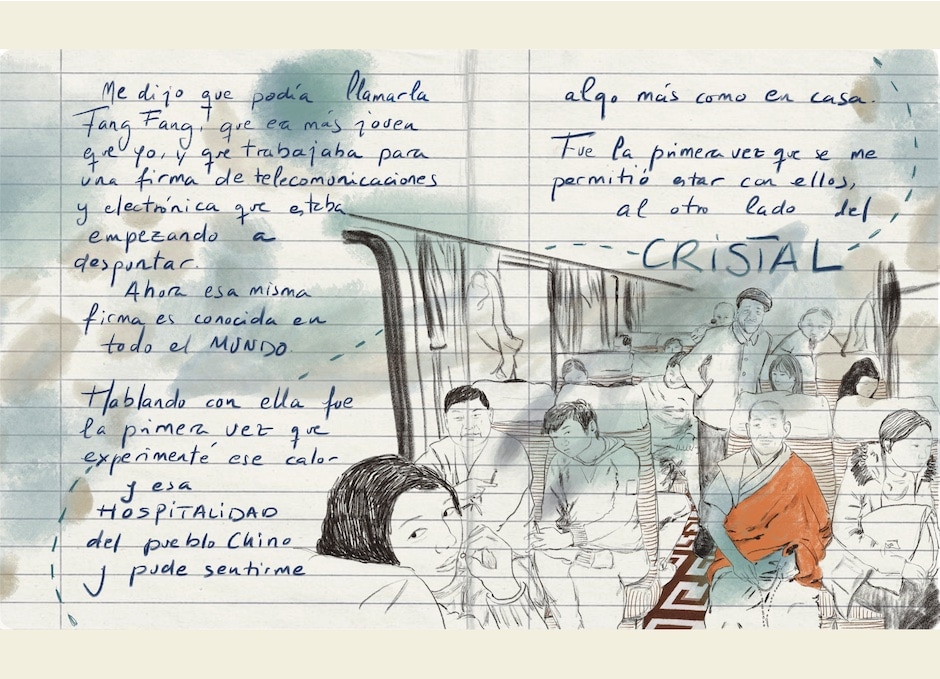 Me dijo que podía llamarla
Fang Fang, que era más joven
que yo, y que trabajaba para
una firma de telecomunicaciones
y electrónica que estaba
empezando a
despuntar.
Ahora esa misma
firma es conocida en
todo el MUNDO
Hablando con ella fue
la primera vez que
experimenté ese calor
y esa
HOSPITALIDAD
del pueblo Chino
y pude sentirme
algo más como en casa.
Fue la primera vez que se me
permitió estar con ellos,
al otro lado del
CRISTAL